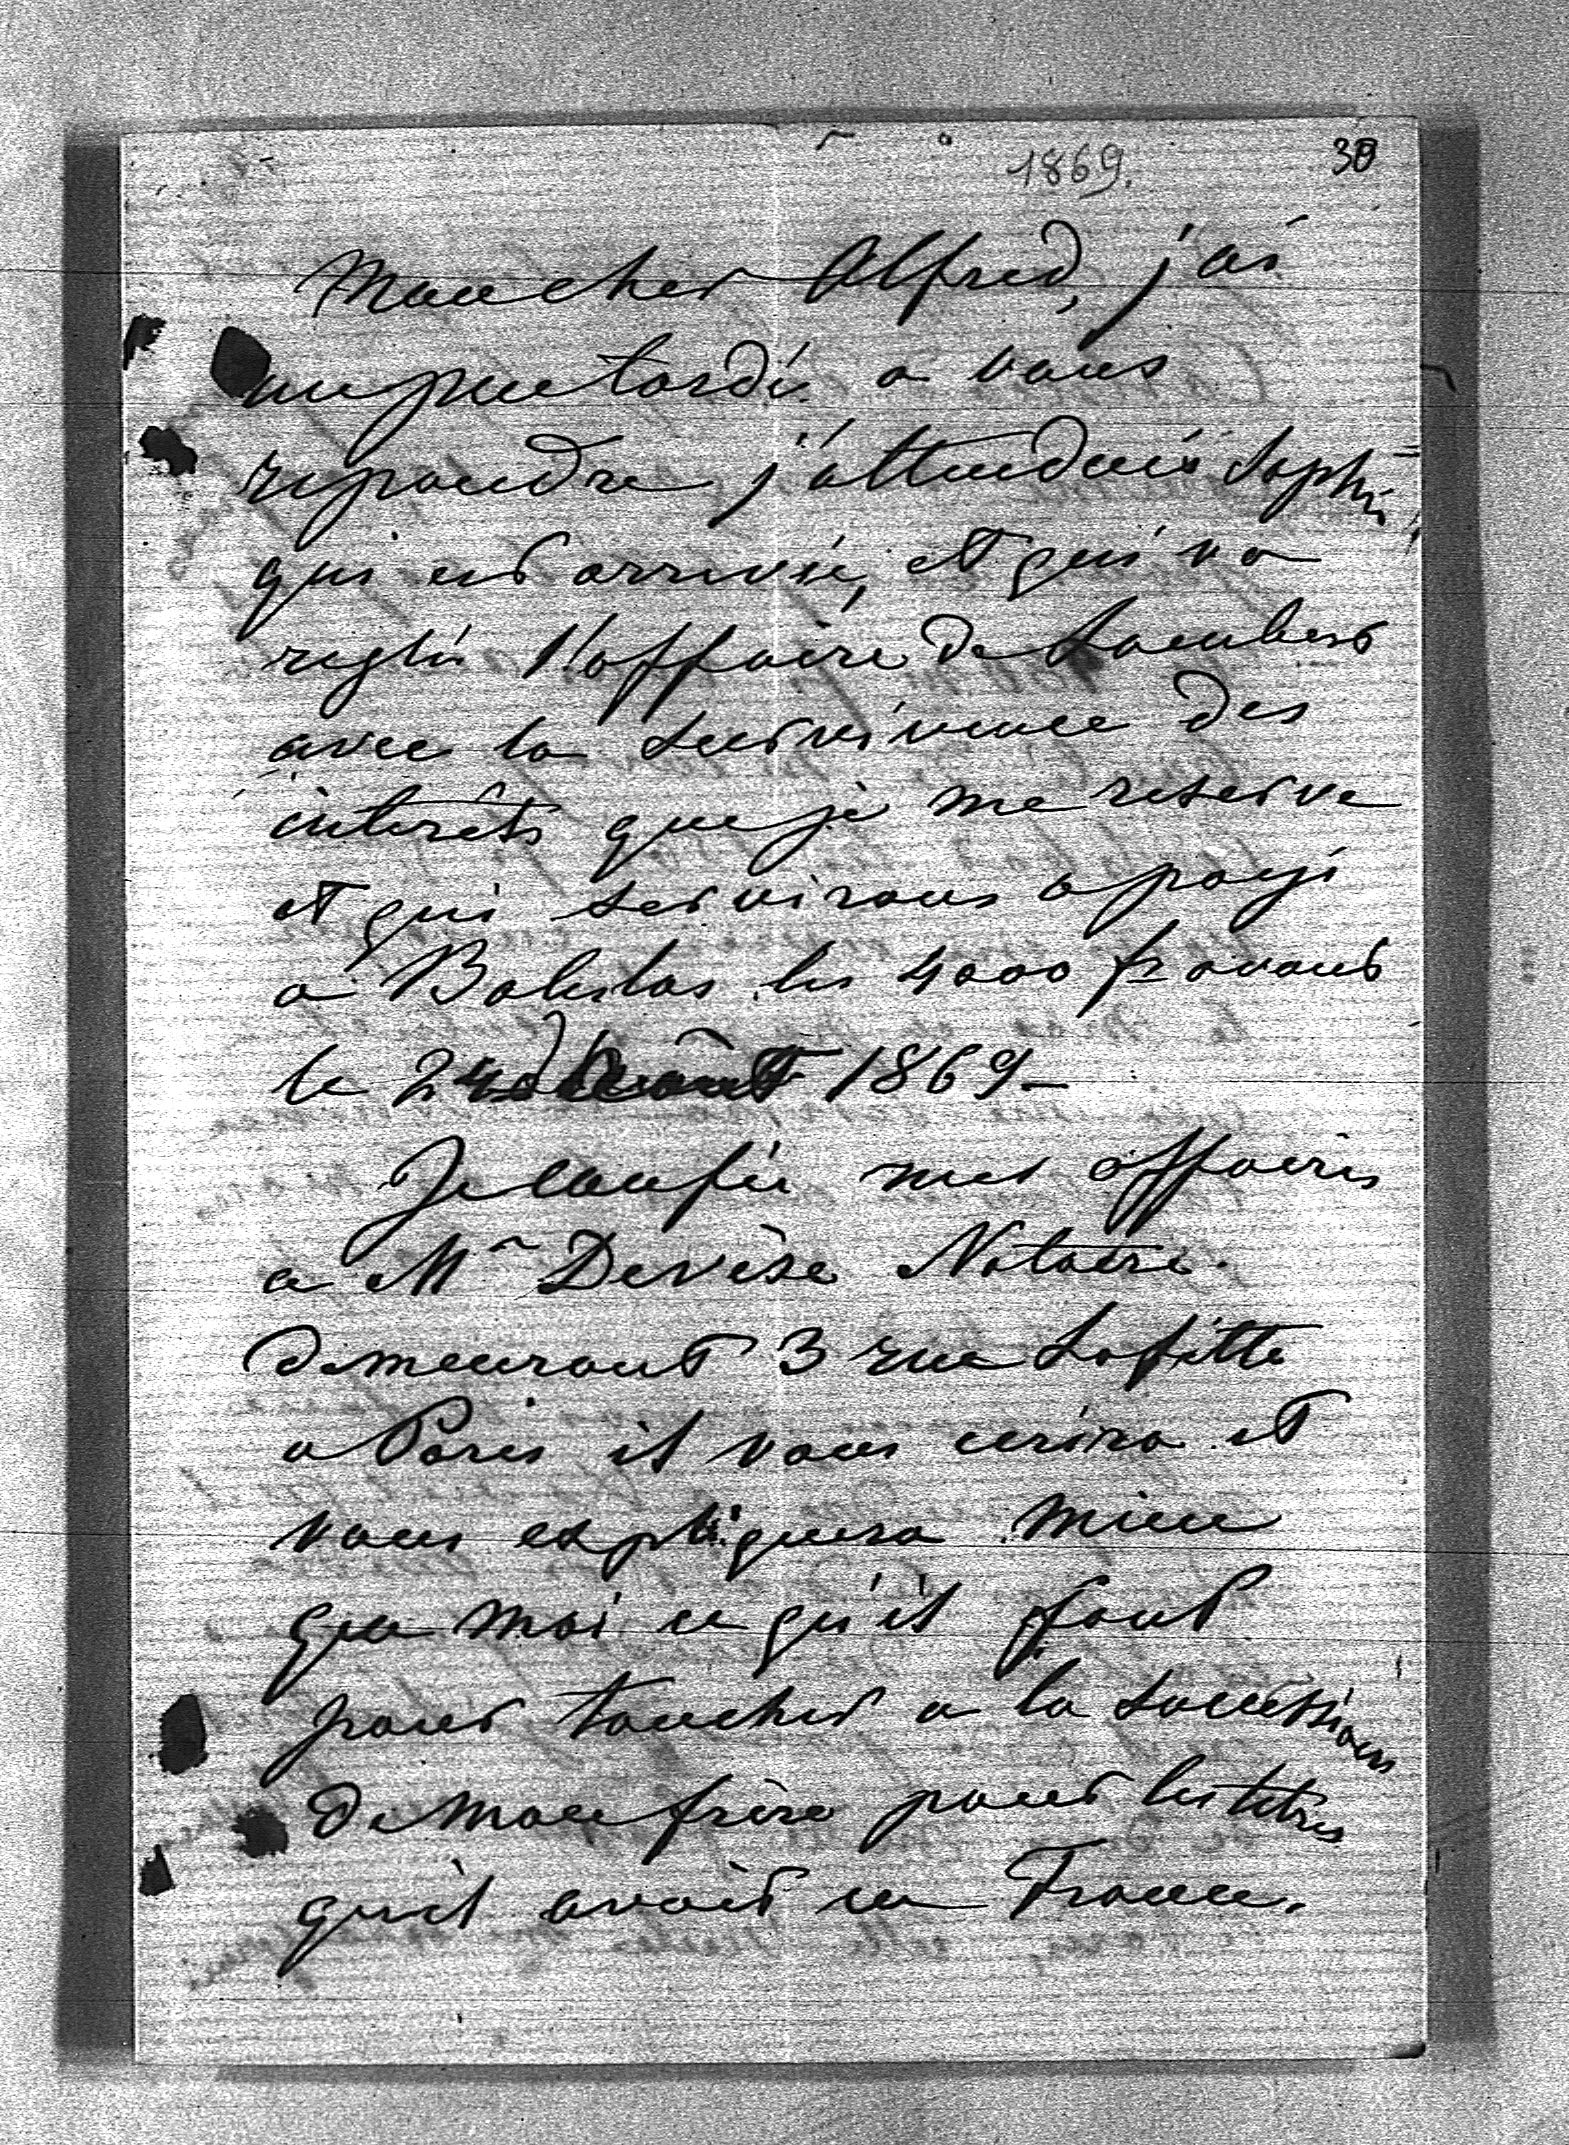 1869.
30
Mon cher Alfred, j'ai
un peu tardé a vous
repondre j'attendais Sophie
qui est arrivée, et qui va
reglér l'affaire de Lambert
avec la survivence des
interêts que je me reserve
et qui servirons a payé
a Boleslas les 4000 fr avant
le 24 août 1869 –
Je confie mes affaires
a Mr Devèse Notaire.
demeurant 3 rue Lafitte
a Paris il vous ecrira et
vous expliquera mieu
que moi ce qu'il faut
pour toucher a la sucession
de mon frère pour les titres
qu'il avait en France.